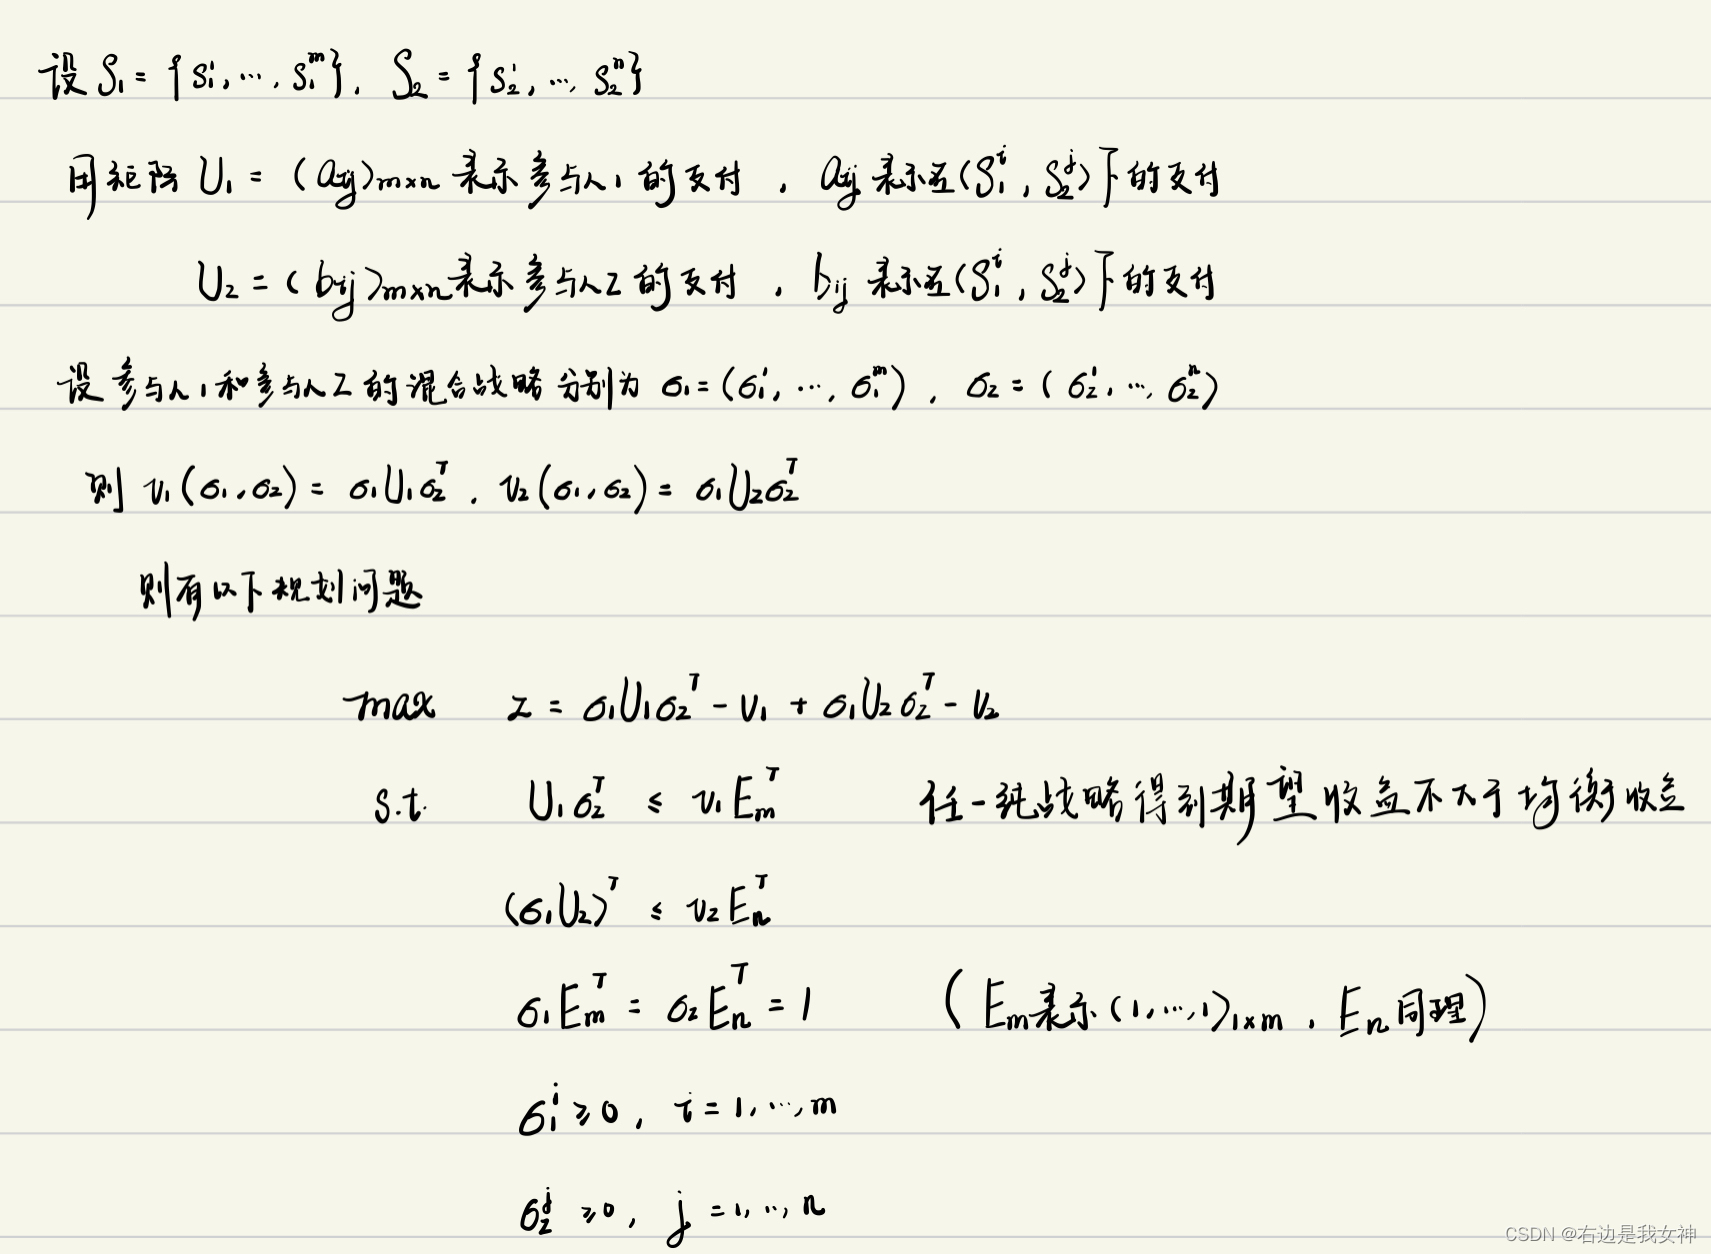 设 S₁ = {s₁¹, ⋯, s₁ᵐ}, S₂ = {s₂¹, ⋯, s₂ⁿ}
用矩阵 U₁ = (aᵢⱼ)ₘₓₙ 表示参与人1的支付, aᵢⱼ 表示在(S₁ⁱ, S₂ʲ)下的支付
U₂ = (bᵢⱼ)ₘₓₙ 表示参与人2的支付, bᵢⱼ 表示在(S₁ⁱ, S₂ʲ)下的支付
设参与人1和参与人2的混合战略分别为 σ₁ = (σ₁¹, ⋯, σ₁ᵐ), σ₂ = (σ₂¹, ⋯, σ₂ⁿ)
则 v₁(σ₁, σ₂) = σ₁U₁σ₂ᵀ, v₂(σ₁, σ₂) = σ₁U₂σ₂ᵀ
则有以下规划问题
max z = σ₁U₁σ₂ᵀ - v₁ + σ₁U₂σ₂ᵀ - v₂
s.t. U₁σ₂ᵀ ≤ v₁Eₘᵀ 任一纯战略得到期望收益不大于均衡收益
(σ₁U₂)ᵀ ≤ v₂Eₙᵀ
σ₁Eₘᵀ = σ₂Eₙᵀ = 1 (Eₘ表示(1, ⋯, 1)₁ₓₘ, Eₙ同理)
σ₁ⁱ ≥ 0, i = 1, ⋯, m
σ₂ʲ ≥ 0, j = 1, ⋯, n
CSDN @右边是我女神